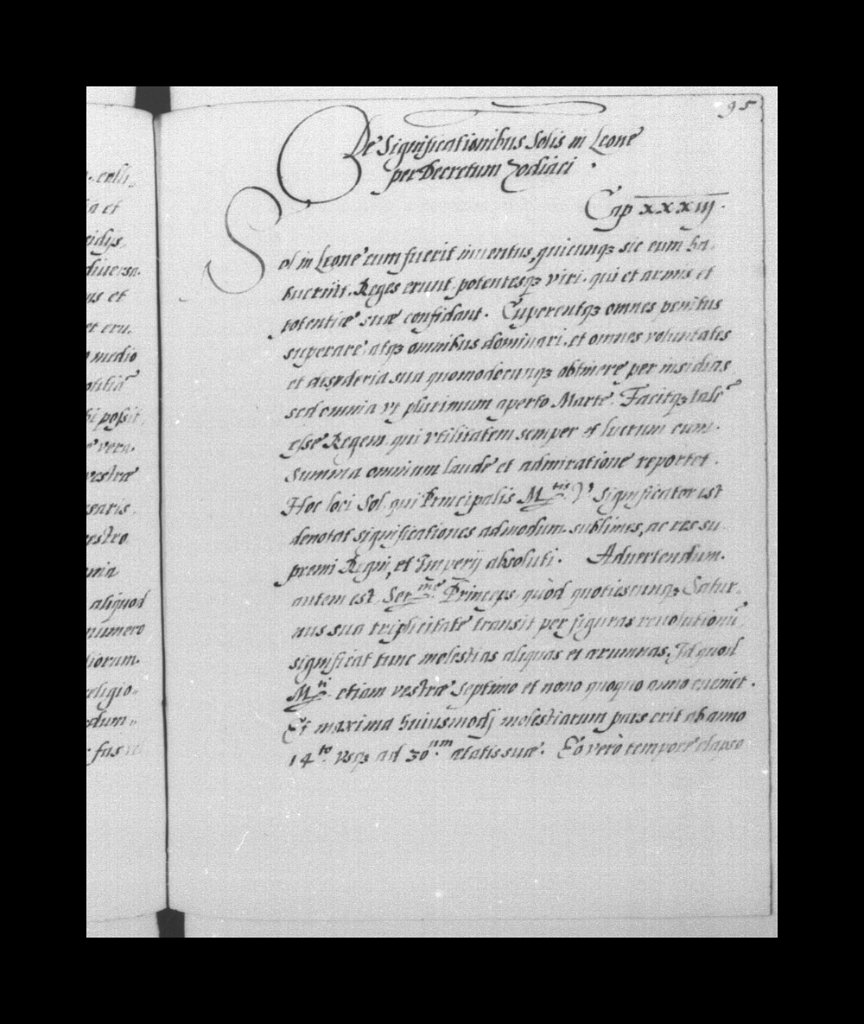 95
De Significationibus Solis in Leone
per Decretum Zodiaci.
Cap XXXIIJ.
Sol in Leone cum fuerit inventus, quicunqꝫ sic eum ha-
buerint. Reges erunt potentesqꝫ viri. qui et armis et
potentiæ suæ confidant. Cuperentqꝫ omnes penitus
superare atqꝫ omnibus dominari, et omnes voluntates
et desyderia sua quomodocunqꝫ obtinere per insidias
sed omnia vt plurimum aperto Marte. Facitqꝫ talē
esse Regem, qui vtilitatem semper et lucrum cum
summa omnium laude et admiratione reportet.
Hoc loci Sol, qui Principalis M.tis V Significator est
denotat significationes admodum sublimes, ac res su
premi Regni, et Imperij absoluti. Aduertendum
autem est Ser.me Princeps quòd quotiescunqꝫ Satur-
nus sua triplicitate transit per figuras reuolutionū
significat tunc molestias aliquas et ærumnas, Id quod
M.ti etiam vestræ Septimo et nono quoquo anno eueniet.
Et maxima huiusmodj molestiarum pars erit ab anno
14.to vsqꝫ ad 30.um ætatis suæ. Eo verò tempore elapso
colli-
ia et
sidijs
diuersa
as et
et eru-
medio
possit
vera
vestræ
aliquod
numero
religio-